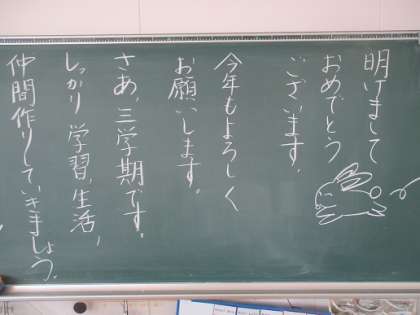 明けまして
おめでとう
ございます。
今年もよろしく
お願いします。
さあ、三学期です。
しっかり学習、生活、
仲間作りしていきましょう。